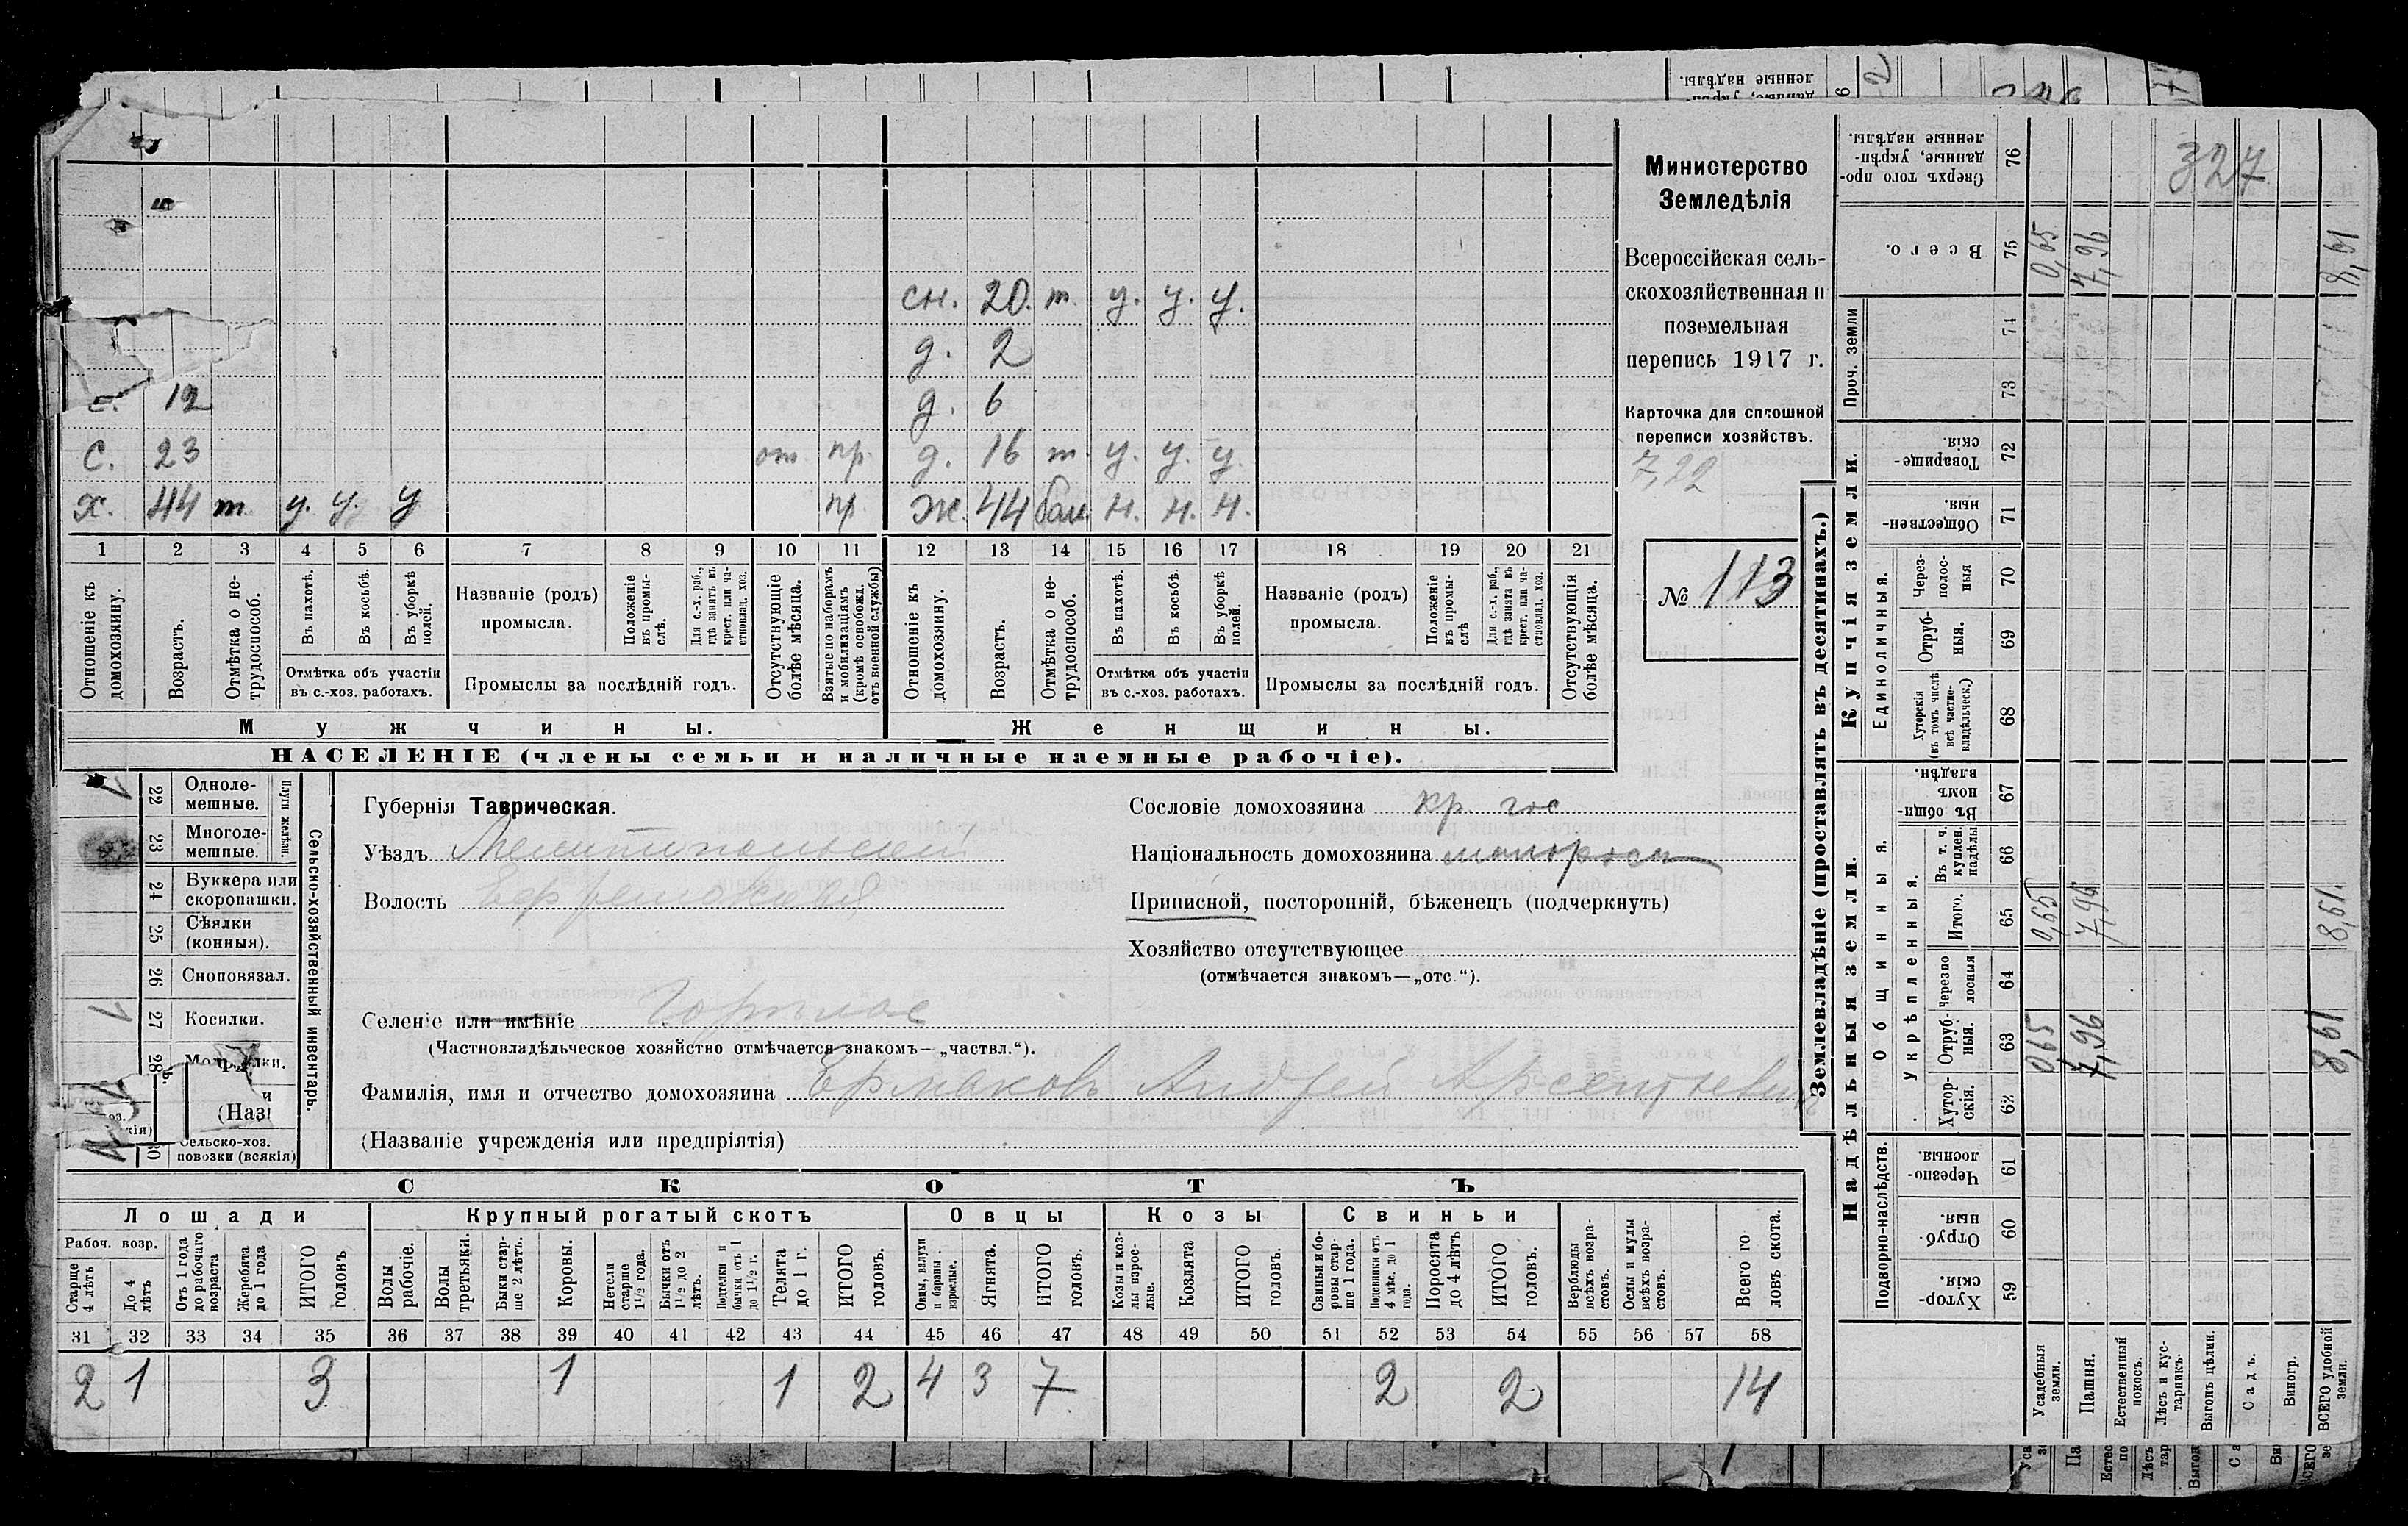 327
Министерство
Земледѣлія
Всероссійская сель-
скохозяйственная и
поземельная
перепись 1917 г.
Карточка для сплошной
переписи хозяйствъ.
7,22
№ 113
сн. 20. т. у. у. у.
д. 2
12 д. 6
с. 23 от. пр. д. 16 т. у. у. у.
х. 44 т. у. у. у пр. ж. 44 бол. н. н. н.
1 2 3 4 5 6 7 8 9 10 11 12 13 14 15 16 17 18 19 20 21
Отношеніе къ домохозяину.
Возрастъ.
Отмѣтка о не-трудоспособ.
Въ пахотѣ.
Въ косьбѣ.
Въ уборкѣ полей.
Отмѣтка объ участіи
въ с.-хоз. работахъ.
Названіе (родъ)
промысла.
Положеніе въ промы-слѣ.
Для с.-х. раб., гдѣ занятъ въ крест. или ча-ствовлад. хоз.
Промыслы за послѣдній годъ.
Отсутствующіе болѣе мѣсяца.
Взятые по наборамъ и мобилизаціямъ (кромѣ освобожд. отъ военной службы)
Отношеніе къ домохозяину.
Возрастъ.
Отмѣтка о не-трудоспособ.
Въ пахотѣ.
Въ косьбѣ.
Въ уборкѣ полей.
Отмѣтка объ участіи
въ с.-хоз. работахъ.
Названіе (родъ)
промысла.
Положеніе въ промы-слѣ
Для с.-х. раб., гдѣ занята въ крест. или ча-ствовлад. хоз.
Промыслы за послѣдній годъ.
Отсутствующія болѣе мѣсяца.
Мужчины. Женщины.
НАСЕЛЕНІЕ (члены семьи и наличные наемные рабочіе).
22 Одноле-мешные.
23 Многоле-мешные.
Плуги желѣзн.
24 Буккера или скоропашки.
25 Сѣялки (конныя).
26 Сноповязал.
27 Косилки.
28
30 Сельско-хоз. повозки (всякія)
Сельско-хозяйственный инвентарь.
Губернія Таврическая.
Уѣздъ Мелитопольский
Волость Ефремовская
Селеніе или имѣніе
(Частновладѣльческое хозяйство отмѣчается знакомъ—„частвл.“).
Фамилія, имя и отчество домохозяина Ермаковъ Андрей Арсентьевич
(Названіе учрежденія или предпріятія)
Сословіе домохозяина кр. гос
Національность домохозяина малоросъ
Приписной, посторонній, бѣженецъ (подчеркнуть)
Хозяйство отсутствующее
(отмѣчается знакомъ—„отс.“).
СКОТЪ
Лошади Крупный рогатый скотъ Овцы Козы Свиньи
Рабоч. возр.
Старше 4 лѣтъ
До 4 лѣтъ
Отъ 1 года до рабочаго возраста
Жеребята до 1 года
ИТОГО головъ
Волы рабочіе.
Волы третьяки.
Быки стар-ше 2 лѣтъ.
Коровы.
Нетели старше 1½ года.
Бычки отъ 1½ до 2 лѣтъ.
Подтелки и бычки отъ 1 до 1½ г.
Телята до 1 г.
ИТОГО головъ.
Овцы, валухи и бараны взрослые.
Ягнята.
ИТОГО головъ.
Козы и коз-лы взрос-лые.
Козлята
ИТОГО головъ.
Свиньи и бо-ровы стар-ше 1 года.
Подсвинки отъ 4 мѣс. до 1 года.
Поросята до 4 лѣтъ
ИТОГО головъ.
Верблюды всѣхъ возра-стовъ.
Ослы и мулы всѣхъ возра-стовъ.
Всего го-ловъ скота.
31 32 33 34 35 36 37 38 39 40 41 42 43 44 45 46 47 48 49 50 51 52 53 54 55 56 57 58
2 1 3 1 1 2 4 3 7 2 2 14
Землевладѣніе (проставлять въ десятинахъ.)
Надѣльныя земли. Купчія земли. Проч. земли
Подворно-наслѣдств.
Общинныя.
Укрѣпленныя.
Единоличныя.
Хутор-скія. 59
Отруб-ныя. 60
Черезпо-лосныя. 61
Хутор-скія. 62
Отруб-ныя. 63
Черезпо-лосныя 64
Итого. 65
Въ т. ч. куплен. надѣлы 66
Въ общин-номъ владѣн. 67
Хуторскія (въ томъ числѣ всѣ частно-владѣльческ.) 68
Отруб-ныя. 69
Через-полос-ныя 70
Обществен-ныя. 71
Товарище-скія. 72
73
74
Всего. 75
Сверхъ того про-данные, укрѣп-ленные надѣлы. 76
Усадебныя земли. 0,65 0,65 0,65
Пашня. 7,96 7,96 7,96
Естественный покосъ.
Лѣсъ и кус-тарникъ.
Выгонъ цѣлин.
Садъ.
Виногр.
ВСЕГО удобной земли. 8,61 8,61 8,61